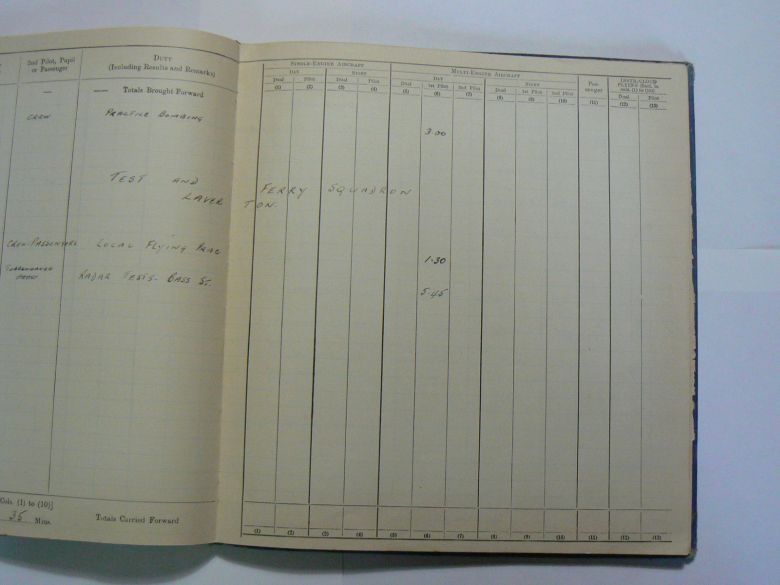 2nd Pilot, Pupil or Passenger
DUTY
(Including Results and Remarks)
SINGLE-ENGINE AIRCRAFT
MULTI-ENGINE AIRCRAFT
Pas-senger
INSTR/CLOUD FLYING [Incl. in cols. (1) to (10)]
DAY
NIGHT
DAY
NIGHT
Dual Pilot Dual Pilot Dual 1st Pilot 2nd Pilot Dual 1st Pilot 2nd Pilot Dual Pilot
(1) (2) (3) (4) (5) (6) (7) (8) (9) (10) (11) (12) (13)
— —— Totals Brought Forward
CREW PRACTICE BOMBING 3.00
TEST AND FERRY SQUADRON
LAVERTON.
CREW-PASSENGERS LOCAL FLYING PRAC 1.30
RADAR TESTS - BASS ST. 5.45
Cols. (1) to (10)]
35 Mins. Totals Carried Forward
(1) (2) (3) (4) (5) (6) (7) (8) (9) (10) (11) (12) (13)